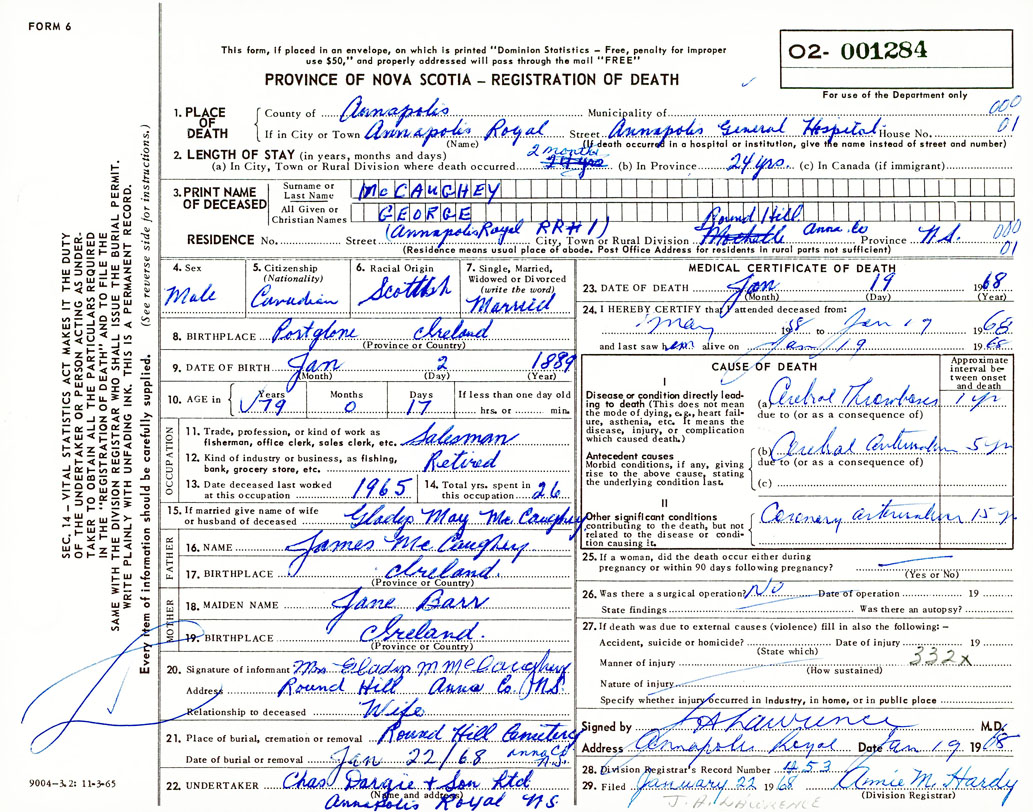 FORM 6
This form, if placed in an envelope, on which is printed "Dominion Statistics – Free, penalty for improper
use $50," and properly addressed will pass through the mail "FREE"
PROVINCE OF NOVA SCOTIA – REGISTRATION OF DEATH
O2- 001284
For use of the Department only
000
01
1. PLACE OF DEATH
County of Annapolis Municipality of
If in City or Town Annapolis Royal Street Annapolis General Hospital House No.
(Name) (If death occurred in a hospital or institution, give the name instead of street and number)
2. LENGTH OF STAY (in years, months and days)
(a) In City, Town or Rural Division where death occurred 2 months (b) In Province 24 yrs. (c) In Canada (if immigrant)
3. PRINT NAME OF DECEASED
Surname or Last Name McCAUGHEY
All Given or Christian Names GEORGE
RESIDENCE No. Street (Annapolis Royal RR#1) City, Town or Rural Division Round Hill Anna. Co Province N.S.
(Residence means usual place of abode. Post Office Address for residents in rural parts not sufficient)
000
01
4. Sex Male
5. Citizenship (Nationality) Canadian
6. Racial Origin Scottish
7. Single, Married, Widowed or Divorced (write the word) Married
8. BIRTHPLACE Portglone Ireland
(Province or Country)
9. DATE OF BIRTH Jan 2 1889
(Month) (Day) (Year)
10. AGE in Years 79 Months 0 Days 17 If less than one day old hrs. or min.
OCCUPATION
11. Trade, profession, or kind of work as fisherman, office clerk, sales clerk, etc. Salesman
12. Kind of industry or business, as fishing, bank, grocery store, etc. Retired
13. Date deceased last worked at this occupation 1965
14. Total yrs. spent in this occupation 26
15. If married give name of wife or husband of deceased Gladys May McCaughey
FATHER
16. NAME James McCaughey
17. BIRTHPLACE Ireland.
(Province or Country)
MOTHER
18. MAIDEN NAME Jane Barr
19. BIRTHPLACE Ireland.
(Province or Country)
20. Signature of informant Mrs Gladys M McCaughey
Address Round Hill Anna Co. N.S.
Relationship to deceased Wife
21. Place of burial, cremation or removal Round Hill Cemetery
Date of burial or removal Jan 22/68 Anna Co. N.S.
22. UNDERTAKER Chas Dargie + Son Ltd
(Name and address)
Annapolis Royal N.S.
MEDICAL CERTIFICATE OF DEATH
23. DATE OF DEATH Jan 19 1968
(Month) (Day) (Year)
24. I HEREBY CERTIFY that I attended deceased from:
May 1958 to Jan 19 1968
and last saw him alive on Jan 19 1968
CAUSE OF DEATH
Approximate interval between onset and death
I
Disease or condition directly leading to death (This does not mean the mode of dying, e.g., heart failure, asthenia, etc. It means the disease, injury, or complication which caused death.)
(a) Cerebral Thrombosis 1 yr
due to (or as a consequence of)
Antecedent causes
Morbid conditions, if any, giving rise to the above cause, stating the underlying condition last.
(b) Cerebral 5 yr
due to (or as a consequence of)
(c)
II
Other significant conditions contributing to the death, but not related to the disease or condition causing it.
Coronary 15 yr
25. If a woman, did the death occur either during
pregnancy or within 90 days following pregnancy?
(Yes or No)
26. Was there a surgical operation? No Date of operation 19
State findings Was there an autopsy?
27. If death was due to external causes (violence) fill in also the following:–
Accident, suicide or homicide? Date of injury 19
(State which)
Manner of injury 332x
(How sustained)
Nature of injury
Specify whether injury occurred in industry, in home, or in public place
Signed by J A Lawrence M.D.
Address Annapolis Royal Date Jan 19 1968
28. Division Registrar's Record Number #53
29. Filed January 22 1968 Amie M. Hardy
(Division Registrar)
J. A. LAWRENCE
SEC. 14 – VITAL STATISTICS ACT MAKES IT THE DUTY
OF THE UNDERTAKER OR PERSON ACTING AS UNDER-
TAKER TO OBTAIN ALL THE PARTICULARS REQUIRED
IN THE "REGISTRATION OF DEATH" AND TO FILE THE
SAME WITH THE DIVISION REGISTRAR WHO SHALL ISSUE THE BURIAL PERMIT.
WRITE PLAINLY WITH UNFADING INK. THIS IS A PERMANENT RECORD.
Every item of information should be carefully supplied. (See reverse side for instructions.)
9004-3.2: 11-3-65